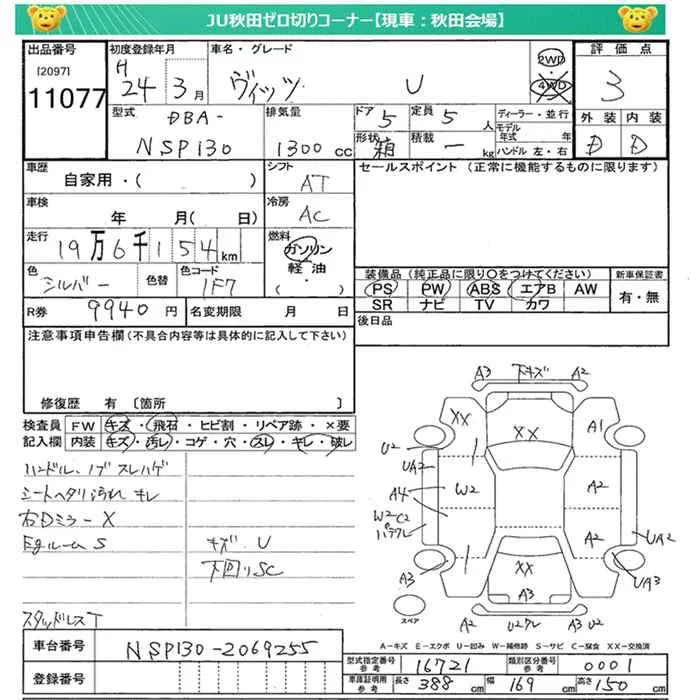 JU秋田ゼロ切りコーナー【現車：秋田会場】
出品番号 初度登録年月 車名・グレード 2WD 評価点
[2097] H
11077 24年3月 ヴィッツ U 4WD 3
型式 DBA- 排気量 ドア 5 定員 5人 ディーラー・並行 外装 内装
NSP130 1300cc 形状 箱 積載 ーkg モデル年式 年 D D
ハンドル 左・右
車歴 シフト セールスポイント (正常に機能するものに限ります)
自家用・( ) AT
車検 冷房
年 月( 日) AC
走行 燃料
19万6千154km ガソリン
軽油
( )
色 色替 色コード 装備品(純正品に限り○をつけてください) 新車保証書
シルバー 1F7 PS PW ABS エアB AW 有・無
SR ナビ TV カワ
R券 9940円 名変期限 月 日 後日品
注意事項申告欄(不具合内容等は具体的に記入して下さい)
修復歴 有 [箇所 ]
検査員 FW キズ・飛石・ヒビ割・リペア跡・×要
記入欄 内装 キズ・汚レ・コゲ・穴・スレ・キレ・破レ
ハンドル、ノブ スレハゲ
シートヘタリ汚れ キレ
右Dミラー X
Egルーム S キズ、U
下回りSC
スタッドレスT
A3 下キズ A2
XX XX A1
U2 UA2
A4 W2 A2
W2-C2
ハラクレ A2 UA2
A3 XX UA3
A3
スペア A3 U2クレ A3 U2
A-キズ E-エクボ U-凹み W-補修跡 S-サビ C-腐食 XX-交換済
車台番号 NSP130-2069255
登録番号
型式指定番号 参考 16721 類別区分番号 参考 0001
車庫証明用 参考 長さ 388cm 幅 169cm 高さ 150cm